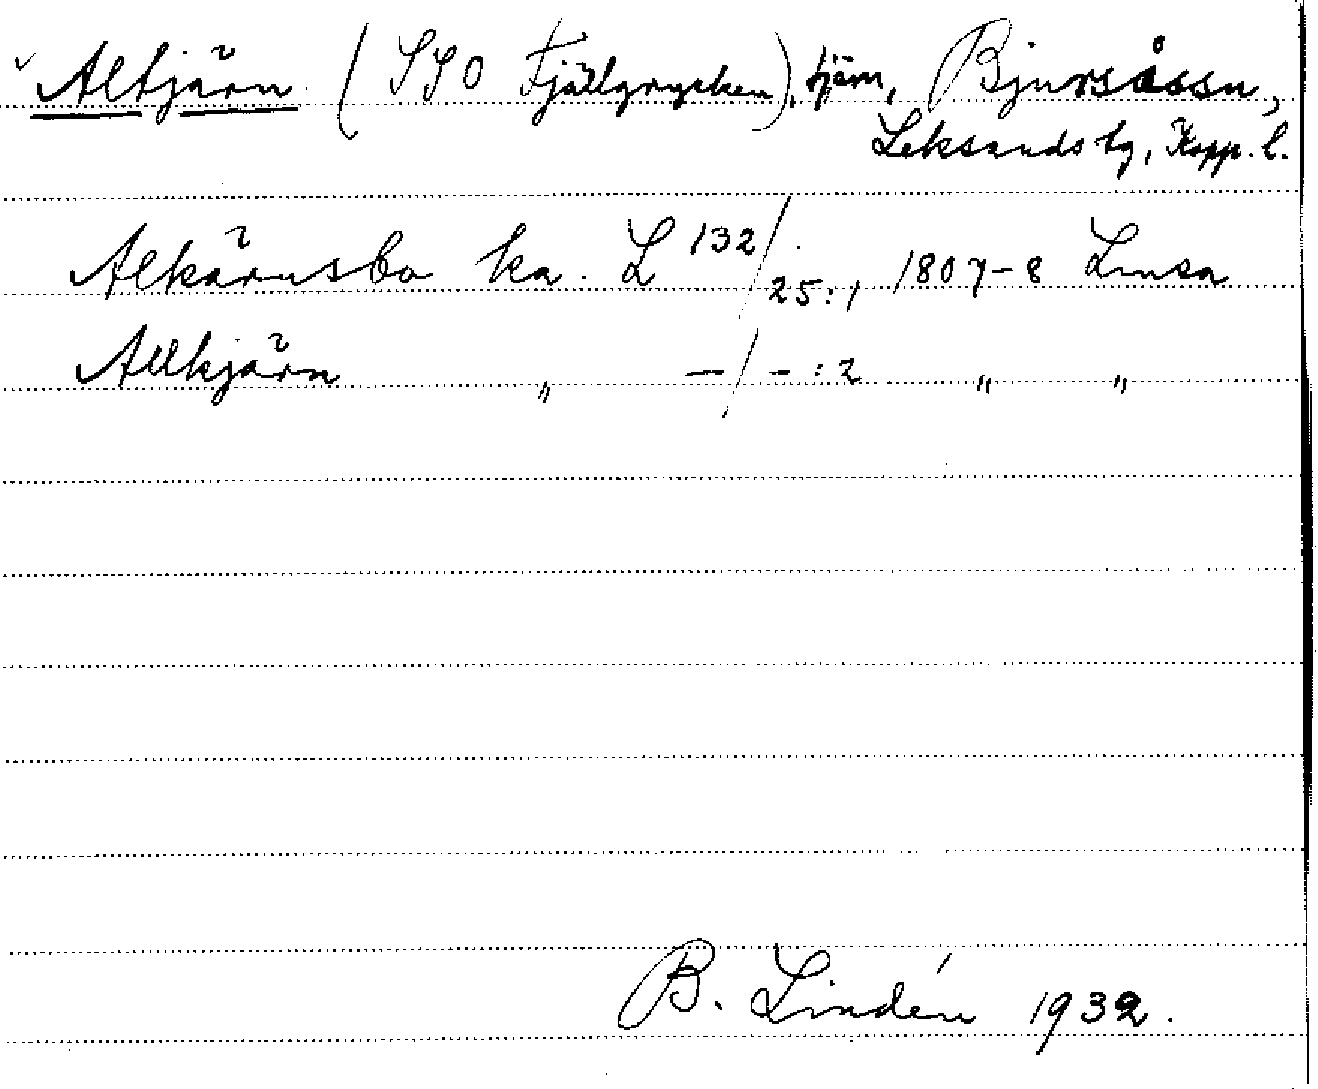 Altjärn (SSO Fjällgrycken), tjärn, Bjursåssn,
Leksands tg, Kopp. l.
Alkärnsbo ka. L 132/25:1 1807-8 Linsa
Allkjärn " -/-:2 " "
B. Lindén 1932.